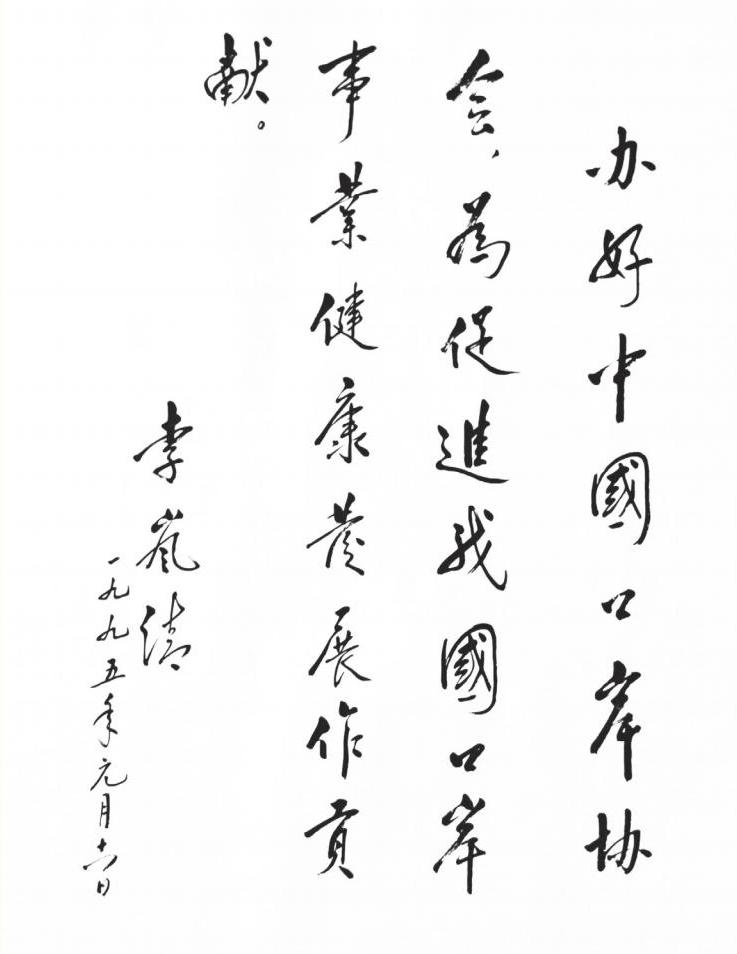 办好中國口岸协
会，為促進我國口岸
事業健康发展作貢
献。
李岚清
一九九五年元月十六日